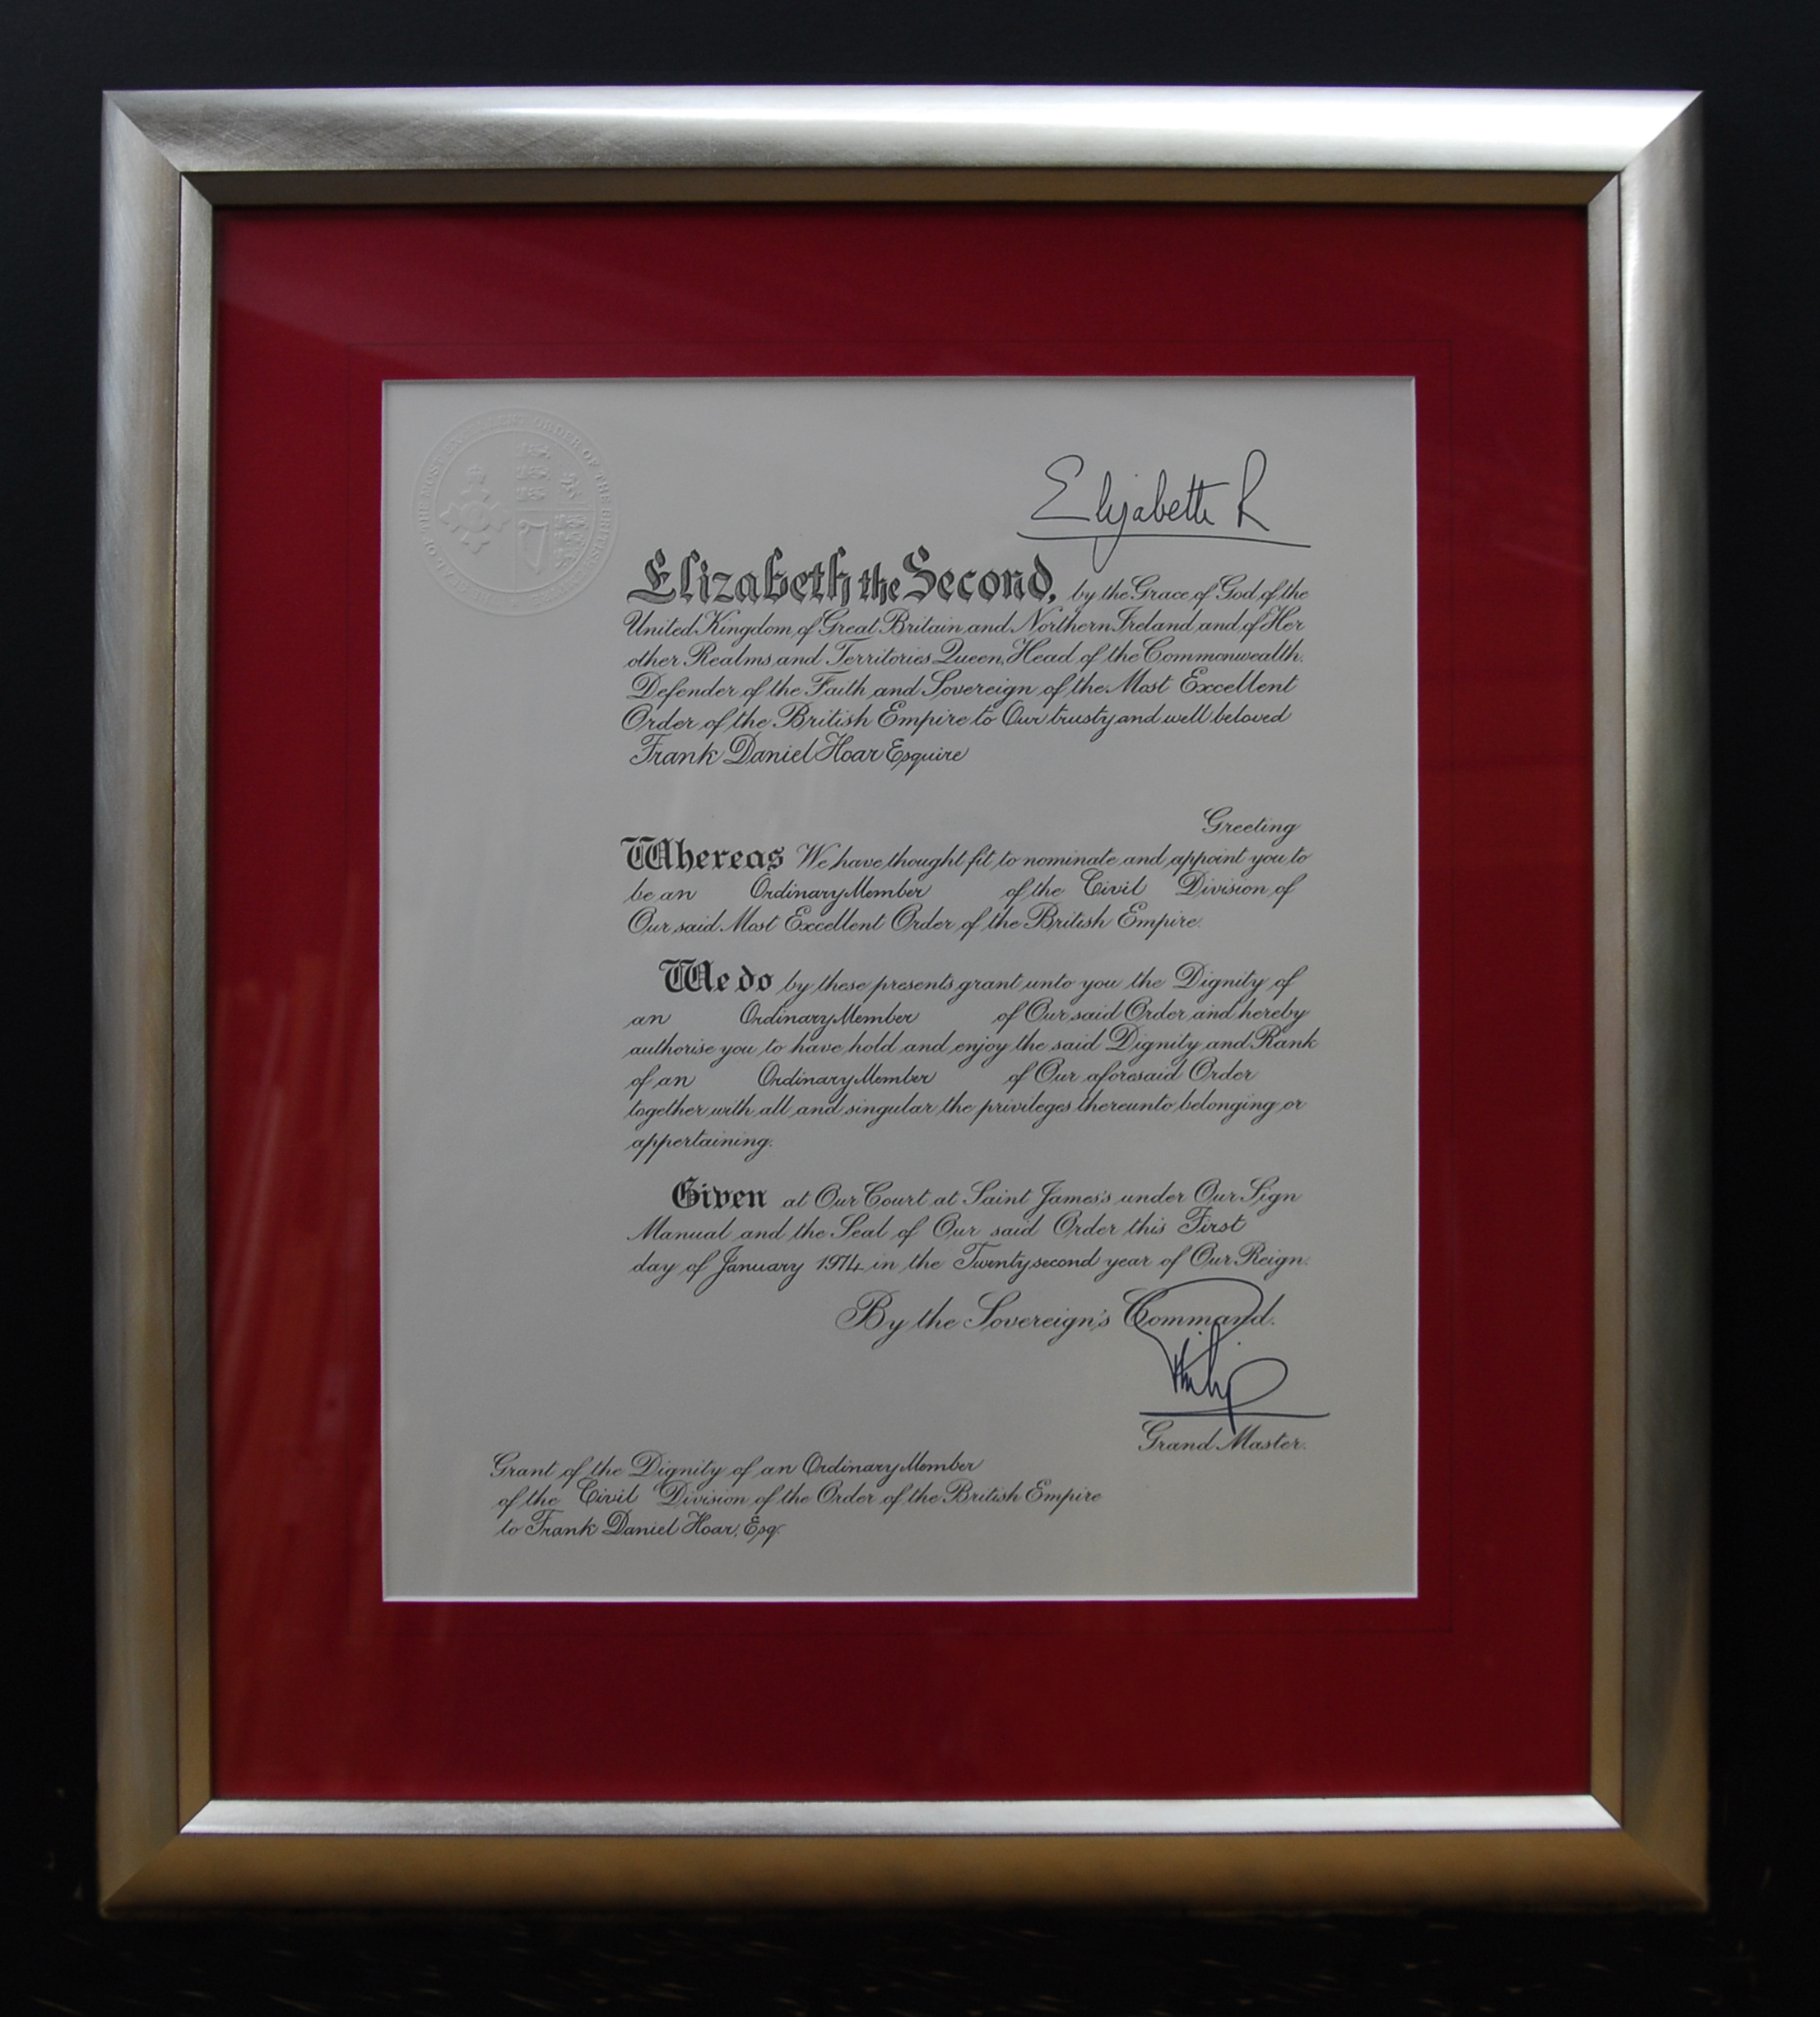 THE MOST EXCELLENT ORDER OF THE BRITISH
Elizabeth R
Elizabeth the Second, by the Grace of God, of the
United Kingdom of Great Britain and Northern Ireland and of Her
other Realms and Territories Queen, Head of the Commonwealth,
Defender of the Faith and Sovereign of the Most Excellent
Order of the British Empire to Our trusty and well beloved
Frank Daniel Hoar Esquire
Greeting
Whereas We have thought fit to nominate and appoint you to
be an Ordinary Member of the Civil Division of
Our said Most Excellent Order of the British Empire.
We do by these presents grant unto you the Dignity of
an Ordinary Member of Our said Order and hereby
authorise you to have hold and enjoy the said Dignity and Rank
of an Ordinary Member of Our aforesaid Order
together with all and singular the privileges thereunto belonging or
appertaining.
Given at Our Court at Saint James's under Our Sign
Manual and the Seal of Our said Order this First
day of January 1974 in the Twenty second year of Our Reign.
By the Sovereign's Command.
Philip
Grand Master.
Grant of the Dignity of an Ordinary Member
of the Civil Division of the Order of the British Empire
to Frank Daniel Hoar, Esq.